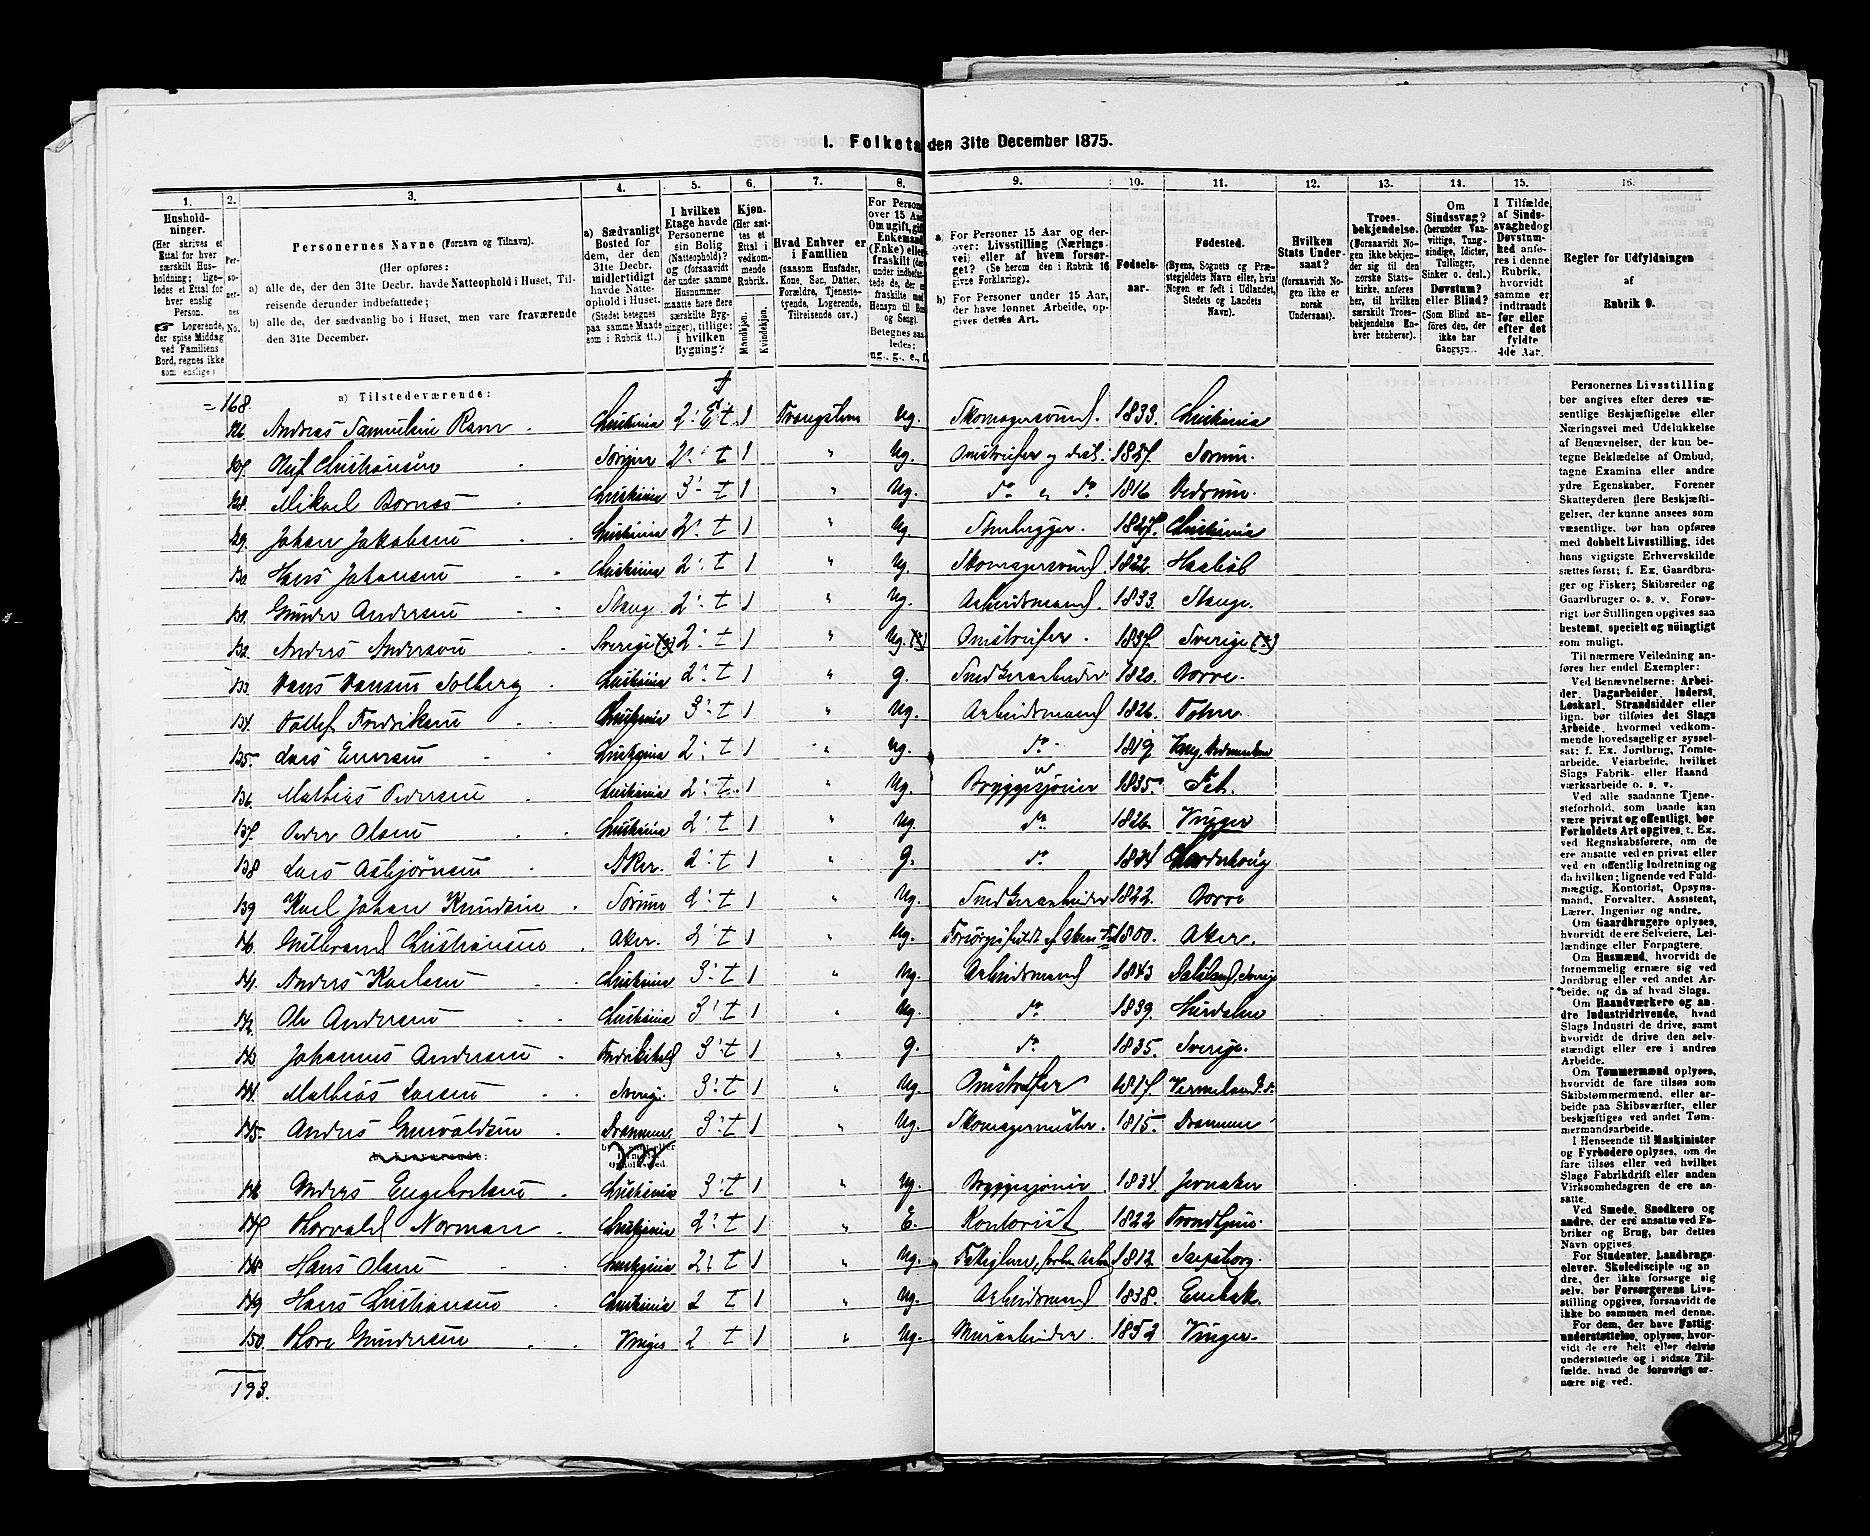 1. Folketæ den 31te December 1875.
1. 2. 3. 4. 5. 6. 7. 8. 9. 10. 11. 12. 13. 14. 15. 16.
Husholdninger. (Her skrives et Ettal for hver særskilt Husholdning; ligeledes et Ettal for hver enslig Person. Logerende, der spise Middag ved Familiens Bord, regnes ikke som enslige.)
Personernes No.
Personernes Navne (Fornavn og Tilnavn).
(Her opføres:
a) alle de, der den 31te Decbr. havde Natteophold i Huset, Tilreisende derunder indbefattede;
b) alle de, der sædvanlig bo i Huset, men vare fraværende den 31te December.
a) Sædvanligt Bosted for dem, der den 31te Decbr. midlertidigt havde Natteophold i Huset. (Stedet betegnes paa samme Maade som i Rubrik 11.)
I hvilken Etage havde Personerne sin Bolig (Natteophold)? og (forsaavidt der under samme Husnummer maatte høre flere særskilte Bygninger), tillige: i hvilken Bygning?
Kjøn. (Her sættes et Ettal i vedkommende Rubrik. Mandkjøn. Kvindekjøn.
Hvad Enhver er i Familien (saasom Husfader, Kone, Søn, Datter, Forældre, Tjenestetyende, Logerende, Tilreisende osv.)
For Person over 15 Aa Om ugift, gif Enkemand (Enke) elle fraskilt
Betegnes saa ledes: ug., g., e., f.
a. For Personer 15 Aar og derover: Livsstilling (Næringsvei) eller af hvem forsørget? (Se herom den i Rubrik 16 givne Forklaring).
b) For Personer under 15 Aar, der have lønnet Arbeide, opgives dettes Art.
Fødselsaar.
Fødested. (Byens, Sognets og Præstegjeldets Navn eller, hvis Nogen er født i Udlandet, Stedets og Landets Navn).
Hvilken Stats Undersaat? (forsaavidt Nogen ikke er norsk Undersaat).
Troesbekjendelse. (Forsaavidt Nogen ikke bekjender sig til den norske Statskirke, anføres her, til hvilken særskilt Troesbekjendelse Enhver henhører).
Om Sindssvag? (herunder Vanvittige, Tungsindige, Idioter, Tullinger, Sinker o. desl.) Døvstum? eller Blind? (Som Blind anføres den, der ikke har Gangsyn.
I Tilfælde af Sindssvaghed og Døvstumhed anføres i denne Rubrik, hvorvidt samme er indtraadt før eller efter det fyldte 4de Aar.
Regler for Udfyldningen af Rubrik 9.
168. a) Tilstedeværende:
126. Andreas Samuelsen Ravn Christiania 2 E t. 1 Tvangslem ug. Skomagersvend. 1833. Christiania
Oluf Christiansen Sørum 2 t 1 " ug. Omstreifer 1827. Sørum.
128. Mikael Bornæs Christiania 3 t 1 " ug. do do 1816
129. Johan Jakobsen Christiania 2 t 1 " ug. Stenhugger. 1827. Christiania
130. Hans Johansen Christiania 2 t 1 " ug. Skomagersvend 1822. Haabøl
131. Gunder Andersen Stange 2 t 1 " ug. Arbeidsmand. 1833. Stange.
132. Anders Andersen Sverige (?) 2 t 1 " ug. (?) Omstreifer. 1837. Sverige (?)
133. Hans Hansen Solberg Christiania 2 t 1 " g. Smedearbeider 1820. Dovre.
134. Detlef Fredriksen Christiania 3 t 1 " ug. Arbeidsmand 1826.
135. Lars Enersen Christiania 2 t 1 " ug. do 1819
136. Mathias Pedersen Christiania 2 t 1 " ug. Bryggesjouer 1835. Fet.
137. Peder Olsen Christiania 2 t 1 " ug. do 1826 Vinger
138 Lars Asbjørnsen Aker. 2 t 1 " g. do
139 Karl Johan Knudsen Sørum 2 t 1 " ug. Smedearbeider 1822. Dovre
140. Gulbrand Christiansen Aker. 2 t 1 " ug. 1800. Aker.
141. Anders Karlsen Christiania 3 t 1 " ug. Arbeidsmand 1843 Dalsland, Sverige
142. Ole Andersen Christiania 3 t 1 " ug. do 1839. Hurdalen
143 Johannes Andersen Fredrikshald 3 t 1 " g. do 1835. Sverige.
144. Mathias Larsen Sverige. 3 t 1 " ug. Omstreifer 1817. Vermeland
145. Anders Enevaldsen Drammen 3 t 1 " ug. Skomagermester. 1815. Drammen
146 Anders Engebretsen Christiania 3 t 1 " ug. Bryggesjouer. 1834. Jevnaker
147 Thorvald Norman Christiania 2 t 1 " E. Kontorist 1822 Trondhjem.
148 Hans Olsen Christiania 2 t 1 " ug. 1812. Sarpsborg.
149 Hans Christiansen Christiania 2 t 1 " ug. Arbeidsmand 1838. Enebak.
150. Thore Gundersen Vinger 2 t 1 " ug. Murarbeider. 1852 Vinger.
193.
Personernes Livsstilling
bør angives efter deres væsentlige Beskjæftigelse eller
Næringsvei med Udelukkelse
af Benævnelser, der kun betegne Beklædelse af Ombud,
tagne Examina eller andre
ydre Egenskaber. Forener
Skatteyderen flere Beskjæftigelser, der kunne ansees som
væsentlige, bør han opføres
med dobbelt Livsstilling, idet
hans vigtigste Erhvervskilde
sættes først; f. Ex. Gaardbruger og Fisker; Skibsreder og
Gaardbruger o. s. v. Forøvrigt bør Stillingen opgives saa
bestemt, specielt og nøiagtigt
som muligt.
Til nærmere Veiledning anføres her endel Exempler:
Ved Benævnelserne: Arbeider, Dagarbeider, Inderst,
Løskarl, Strandsidder eller
lign. bør tilføies det Slags
Arbeide, hvormed vedkommende hovedsagelig er sysselsat; f. Ex. Jordbrug, Tomtearbeide, Veiarbeide, hvilket
Slags Fabrik- eller Haandværksarbeide o. s. v.
Ved alle saadanne Tjenesteforhold, som baade kan
være privat og offentligt, bør
Forholdets Art opgives, t. Ex.
ved Regnskabsførere, om de
ere ansatte ved en privat eller
ved en offentlig Indretning og
da hvilken; lignende ved Fuldmægtig, Kontorist, Opsynsmand, Forvalter, Assistent,
Lærer, Ingeniør og andre.
Om Gaardbrugere oplyses,
hvorvidt de ere Selveiere, Leilændinge eller Forpagtere.
Om Husmænd, hvorvidt de
fornemmelig ernære sig ved
Jordbrug eller ved andet Arbeide, og da af hvad Slags.
Om Haandværkere og andre Industridrivende, hvad
Slags Industri de drive, samt
hvorvidt de drive den selvstændigt eller ere i andres
Arbeide.
Om Tømmermænd oplyses,
hvorvidt de fare tilsøs som
Skibstømmermænd, eller arbeide paa Skibsværfter, eller
beskjæftiges ved andet Tømmermandsarbeide.
I Henseende til Maskinister
og Fyrbødere oplyses, om de
fare tilsøs eller ved hvilket
Slags Fabrikdrift eller anden
Virksomhedsgren de ere ansatte.
Ved Smede, Snedkere og
andre, der ere ansatte ved Fabriker og Brug, bør dettes
Navn opgives.
For Studenter, Landbrugselever, Skoledisciple og andre, der ikke forsørge sig
selv, bør Forsørgerens Livsstilling opgives, forsaavidt de
ikke bo sammen med denne.
For dem, der have Fattigunderstøttelse, oplyses, hvorvidt de ere helt eller delvis
understøttede og i sidste Tilfælde, hvad de forøvrigt ernære sig ved.